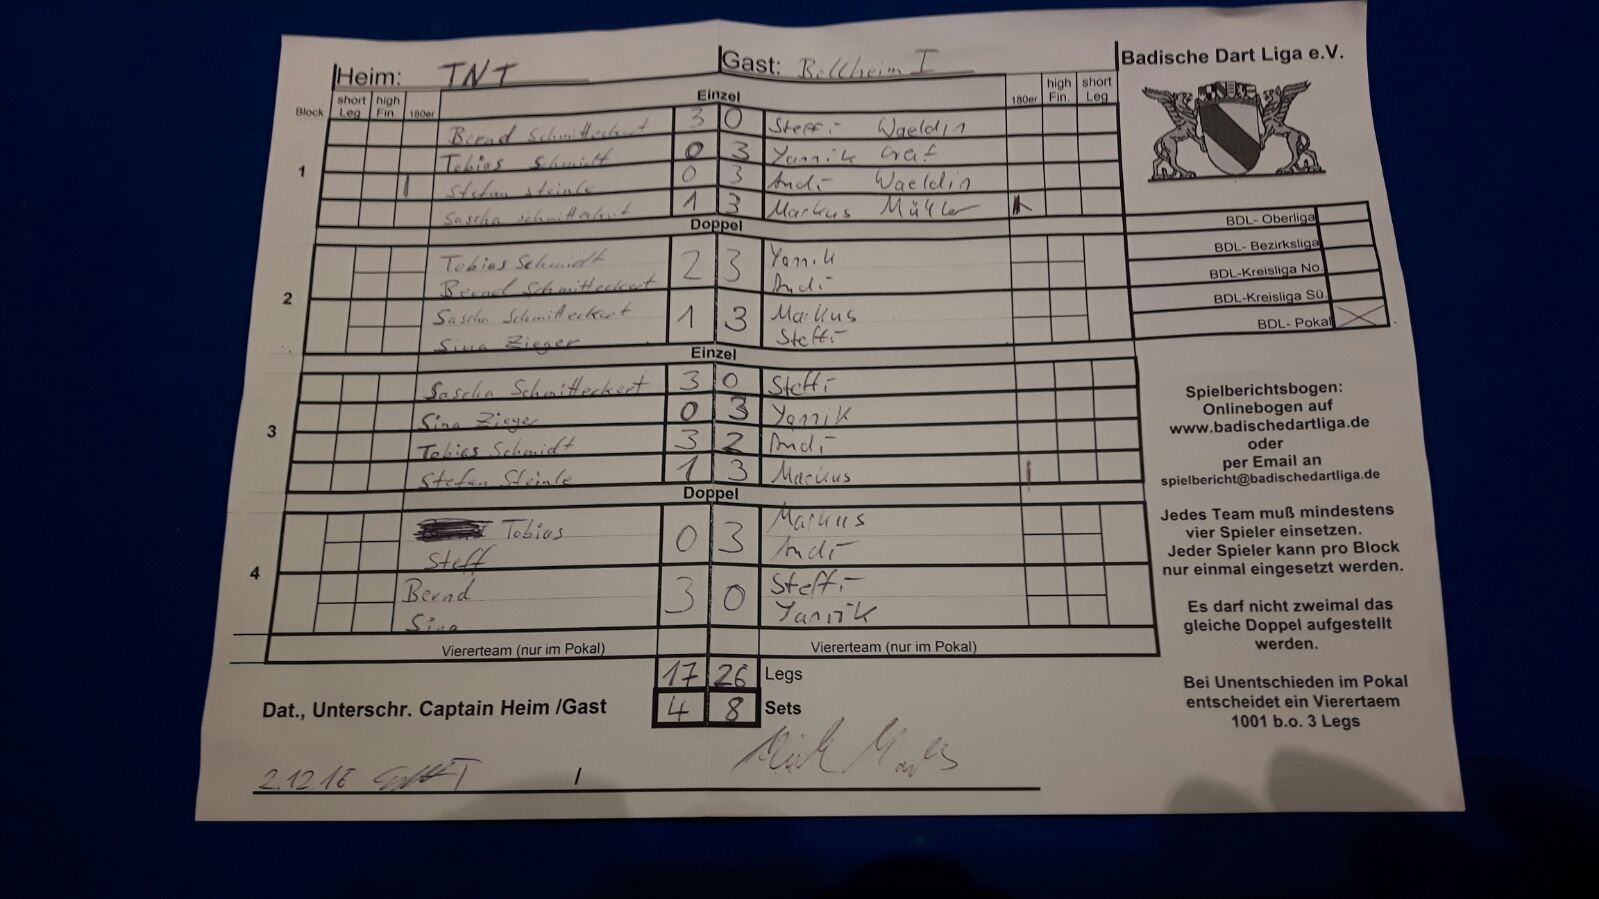 Heim: TNT Gast: Bellheim I Badische Dart Liga e.V.
Block short Leg high Fin. 180er Einzel 180er high Fin. short Leg
1
Bernd Schmitteckert 3 0 Steffi Waeldin
Tobias Schmidt 0 3 Yannik Graf
Stefan Steinle 0 3 Andi Waeldin
Sascha Schmitteckert 1 3 Markus Müller
Doppel
2
Tobias Schmidt 2 3 Yannik
Bernd Schmitteckert Andi
Sascha Schmitteckert 1 3 Markus
Sina Zieger Steffi
Einzel
3
Sascha Schmitteckert 3 0 Steffi
Sina Zieger 0 3 Yannik
Tobias Schmidt 3 2 Andi
Stefan Steinle 1 3 Markus
Doppel
4
Tobias 0 3 Markus
Steff Andi
Bernd 3 0 Steffi
Sina Yannik
Viererteam (nur im Pokal) Viererteam (nur im Pokal)
17 26 Legs
4 8 Sets
Dat., Unterschr. Captain Heim /Gast
2.12.16 /
BDL- Oberliga
BDL- Bezirksliga
BDL-Kreisliga No.
BDL-Kreisliga Sü.
BDL- Pokal
Spielberichtsbogen:
Onlinebogen auf
www.badischedartliga.de
oder
per Email an
spielbericht@badischedartliga.de
Jedes Team muß mindestens
vier Spieler einsetzen.
Jeder Spieler kann pro Block
nur einmal eingesetzt werden.
Es darf nicht zweimal das
gleiche Doppel aufgestellt
werden.
Bei Unentschieden im Pokal
entscheidet ein Vierertaem
1001 b.o. 3 Legs